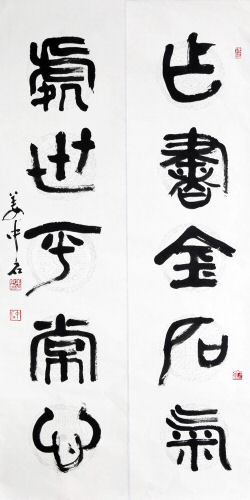 乍書金石氣
處世平常心
姜中石